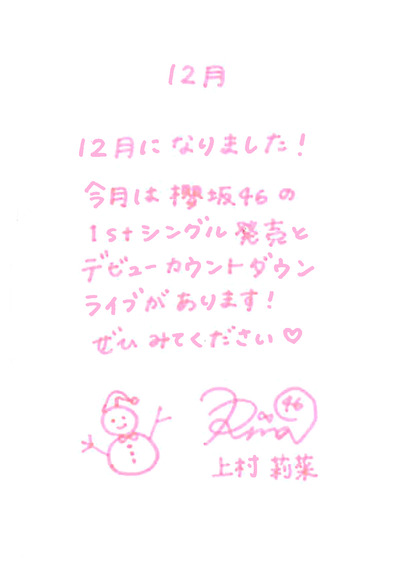 12月
12月になりました!
今月は櫻坂46の
1stシングル発売と
デビューカウントダウン
ライブがあります!
ぜひみてください♡
Rina 46
上村莉菜